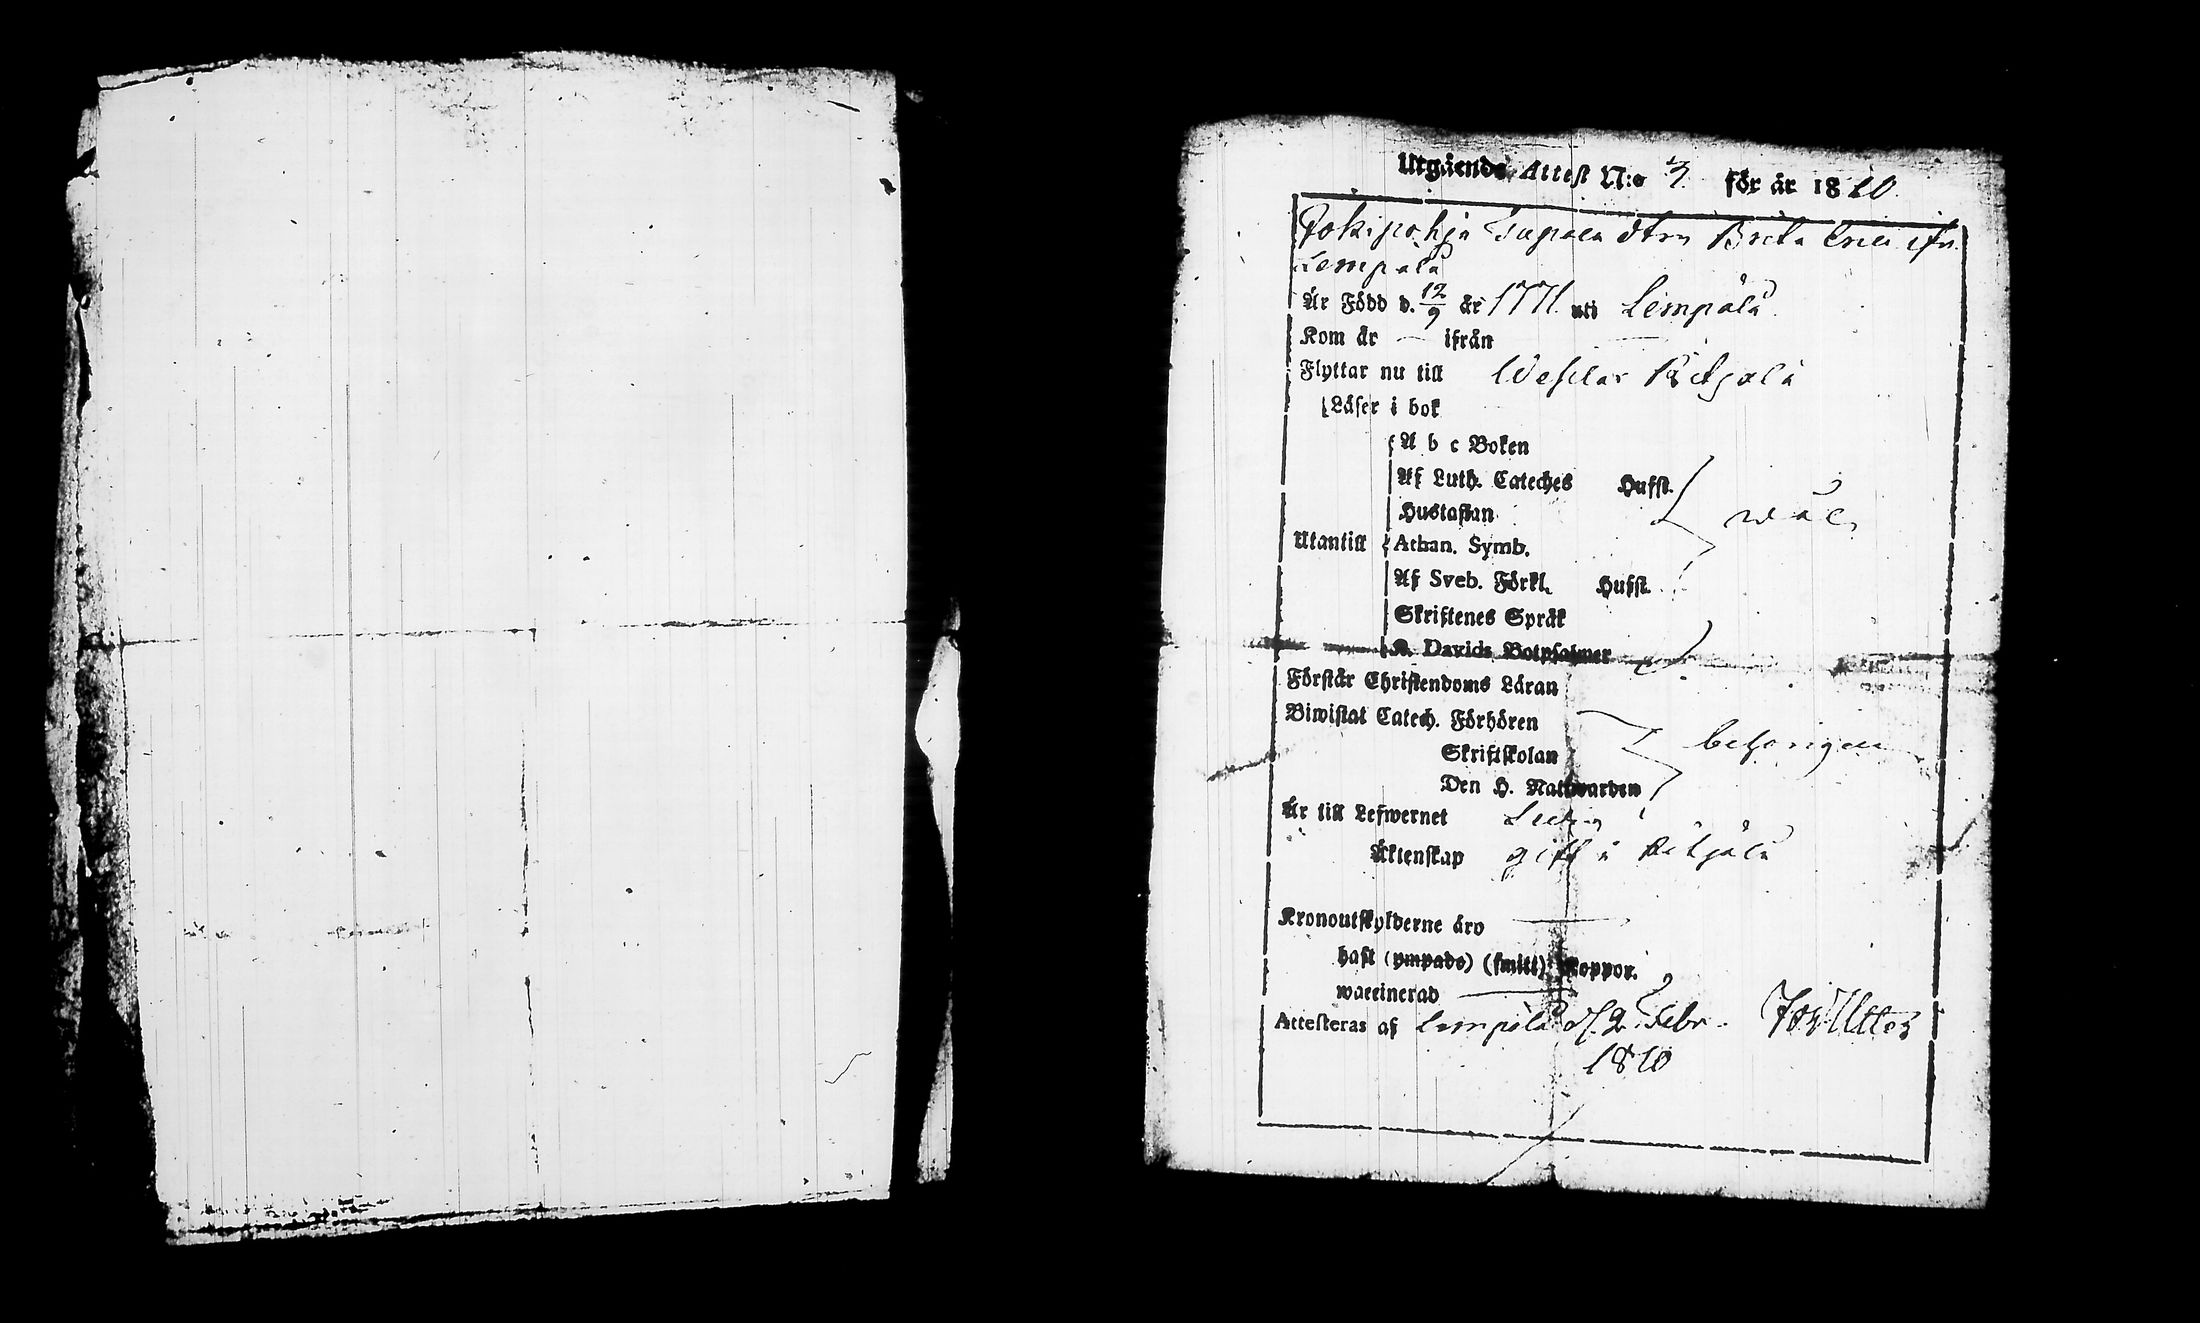 Utgående Attest N:o 3 för år 1810
Jokipohja Supala dtrn Brita Ersd ifrn
Lempälä
Är Född d. 12/9 år 1771 uti Lempälä
Kom år — ifrån —
Flyttar nu till Wester
Läser i bok
A b c Boken
Af Luth. Cateches Hufst.
Hustaflan wäl
Utantill Athan. Symb.
Af Sveb. Förkl. Hufst.
Skriftenes Språk
K. Davids Botpsalmer
Förstår Christendoms Läran
Biwistat Catech. Förhören behörigen
Skriftskolan
Den H. Nattwarden
Är till Lefwernet
Äktenskap gift i
Kronoutskylderne äro —
haft (ympade) (smitt) Koppor.
waccinerad —
Attesteras af Lempälä d. 2 Febr.
1810